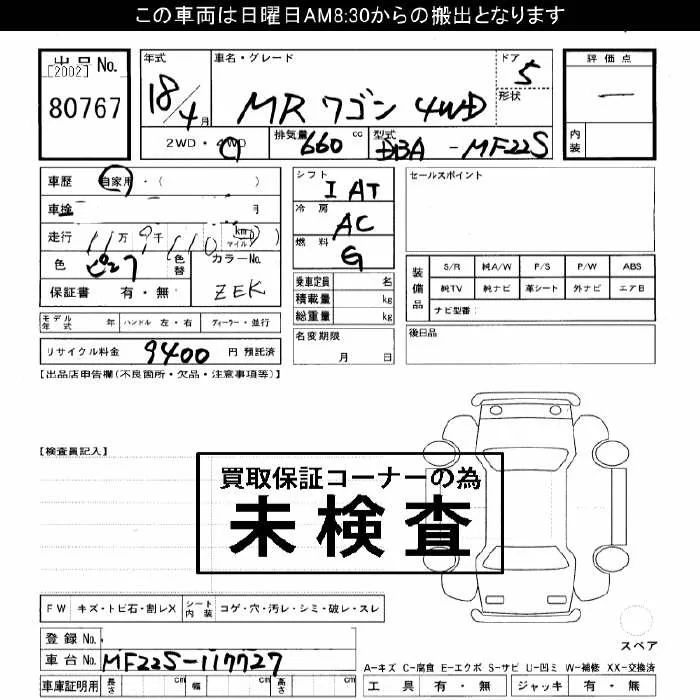 この車両は日曜日AM8:30からの搬出となります
出品 No.
[2002]
80767
年式
18/4月
車名・グレード
MR ワゴン 4WD
ドア
5
形状
評価点
―
内装
2WD・4WD
排気量
660 cc
型式
DBA - MF22S
車歴 自家用・( )
車検 月
走行 11万9千110 (km マイル)
色 ピンク
色替
カラーNo.
ZEK
保証書 有・無
シフト
I AT
冷房
AC
燃料
G
乗車定員 名
積載量 kg
総重量 kg
セールスポイント
装備品
S/R 純A/W P/S P/W ABS
純TV 純ナビ 革シート 外ナビ エアB
ナビ型番:
モデル年式 年 ハンドル 左・右 ディーラー・並行
名変期限
月 日
後日品
リサイクル料金 9400 円 預託済
【出品店申告欄(不良箇所・欠品・注意事項等)】
【検査員記入】
買取保証コーナーの為
未検査
FW キズ・トビ石・割レX シート内装 コゲ・穴・汚レ・シミ・破レ・スレ
スペア
登録 No.
車台 No. MF22S-117727
A-キズ C-腐食 E-エクボ S-サビ U-凹ミ W-補修 XX-交換済
車庫証明用 長さ cm 幅 cm 高さ cm
工具 有・無 ジャッキ 有・無